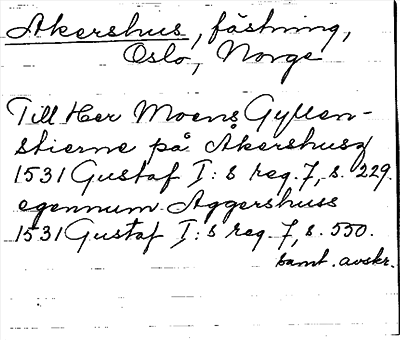 Akershus, fästning,
Oslo, Norge
Till Her Moens Gyllen-
stierne på Åkershusz
1531 Gustaf I:s reg. 7, s. 229.
egennum. Aggershuss
1531 Gustaf I:s reg. 7, s. 550.
samt. avskr.